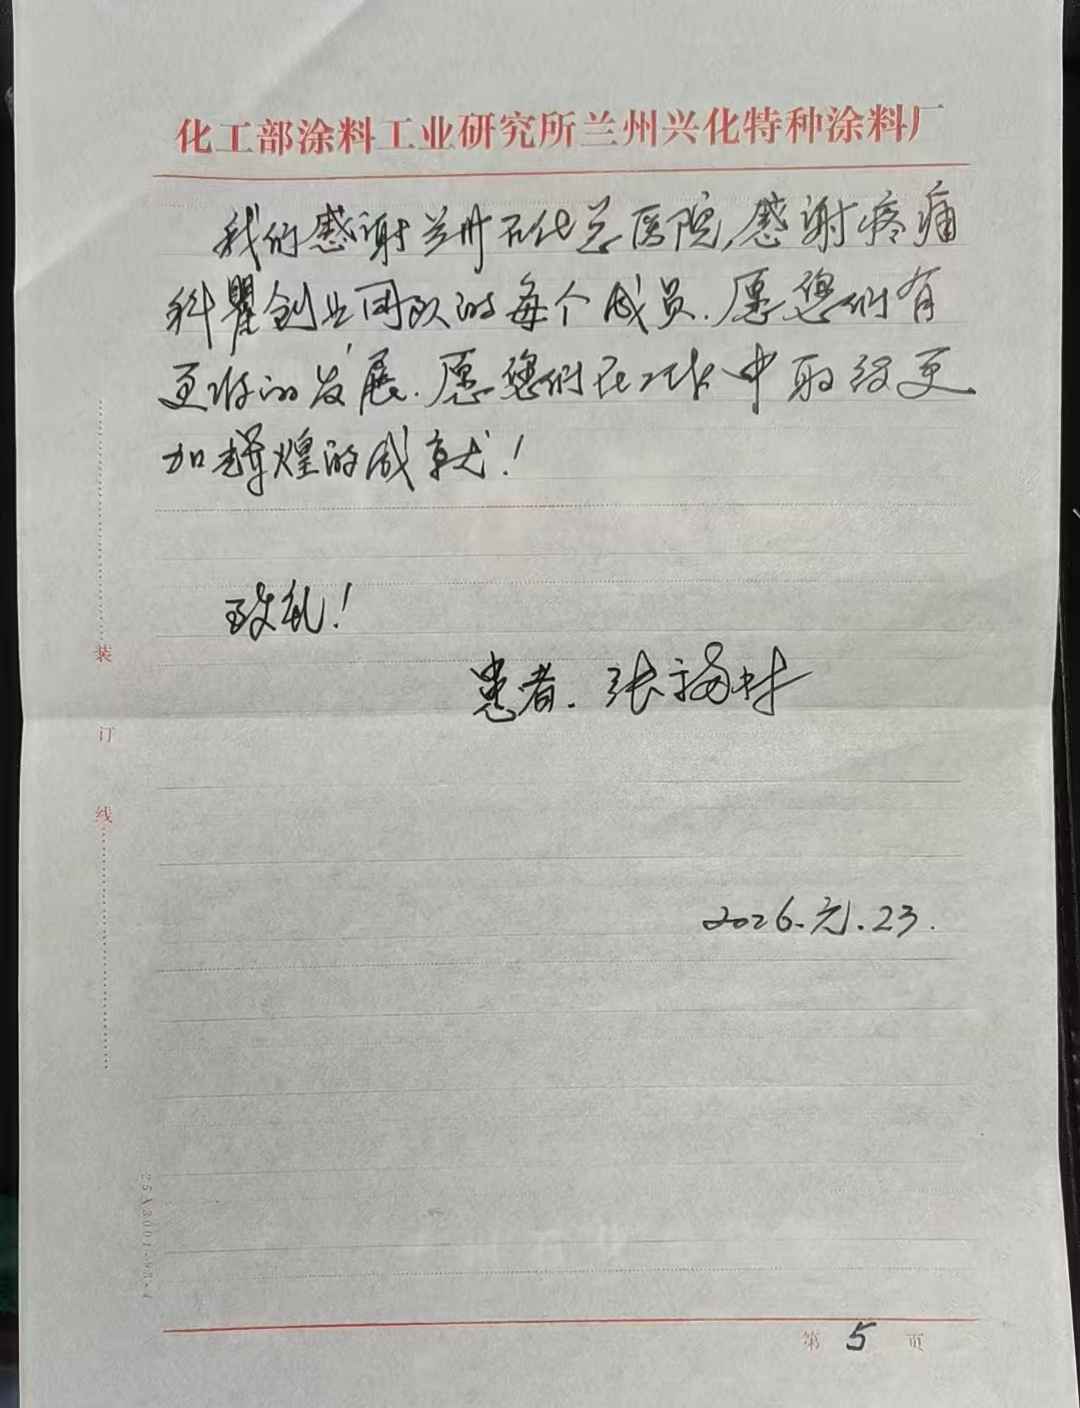 化工部涂料工业研究所兰州兴化特种涂料厂
我们感谢兰州石化总医院，感谢疼痛
科瞿创业团队的每个成员．愿您们有
更好的发展．愿您们在工作中取得更
加辉煌的成就！
致礼！
患者．张福林
2026.元.23.
装
订
线
第 5 页